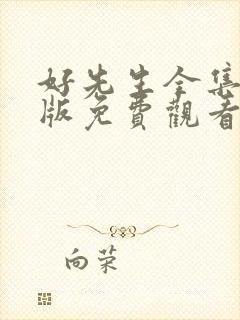 好先生全集
版免費觀看
向荣